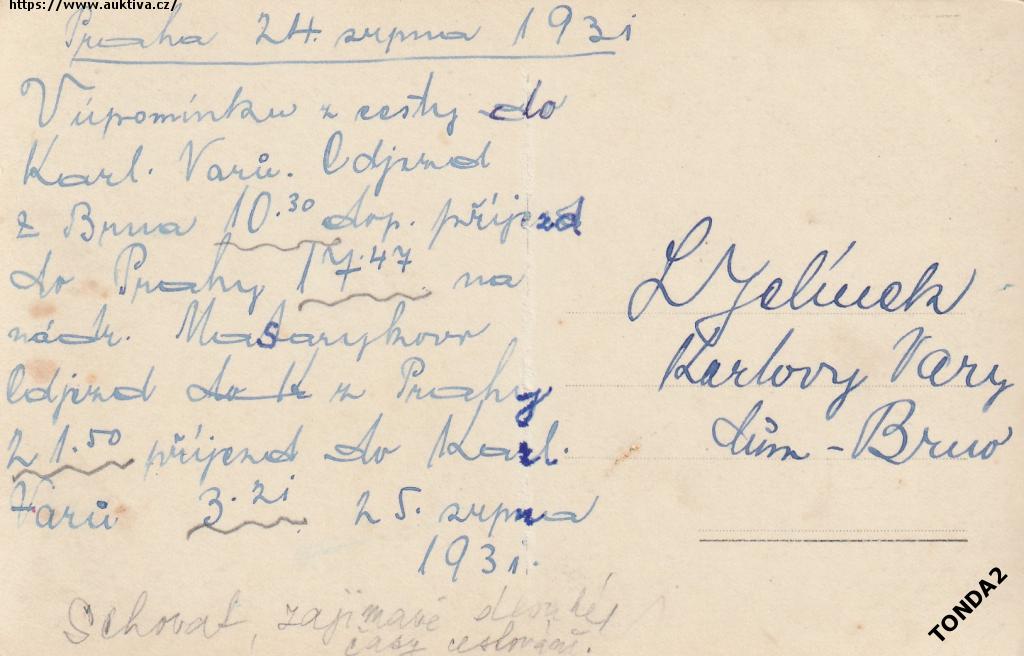 https://www.auktiva.cz/
Praha 24. srpna 1931
Vúpomínku z cesty do
Karl. Varů. Odjezd
z Brna 10.30 dop. příjezd
do Prahy 17.47 na
nádr. Masarykovo
Odjezd do K z Prahy
21.50 příjezd do Karl.
Varů 3.21 25. srpna
1931.
Schovat, zajímavé dlouhé
časy cestování.
L Jelínek
Karlovy Vary
dům - Brno
TONDA2